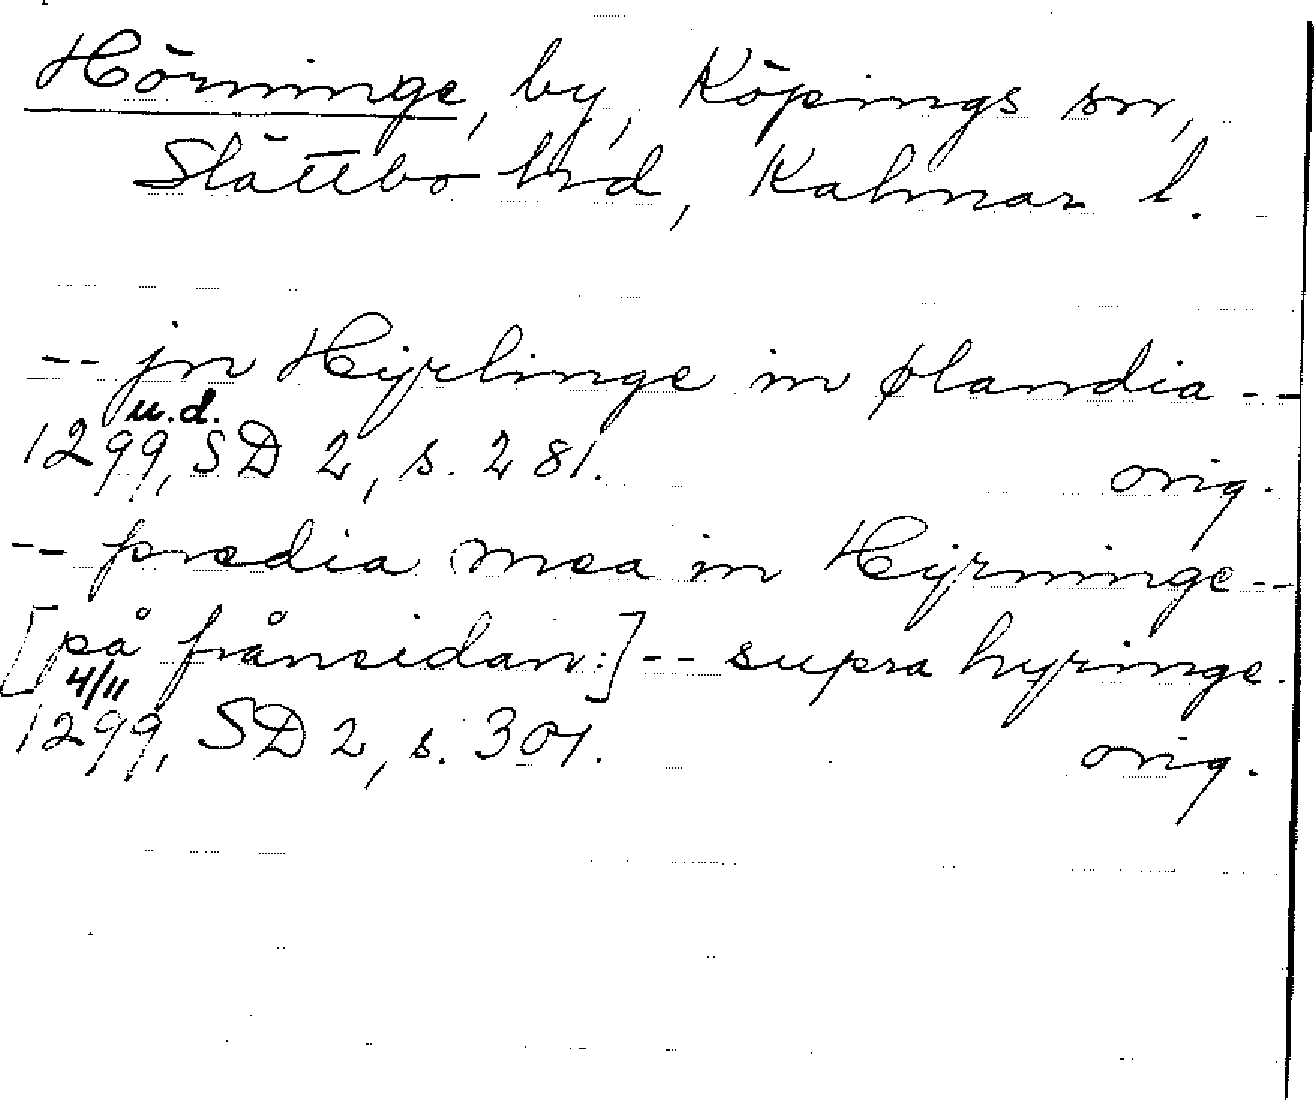 Hörninge, by, Köpings sn,
Slättbo hrd, Kalmar l.
-- jn Hyrlinge in ølandia --
u.d.
1299, SD 2, s. 281. orig.
-- prædia mea in Hyrninge --
[på frånsidan:] -- supra hyringe.
4/11
1299, SD 2, s. 301. orig.